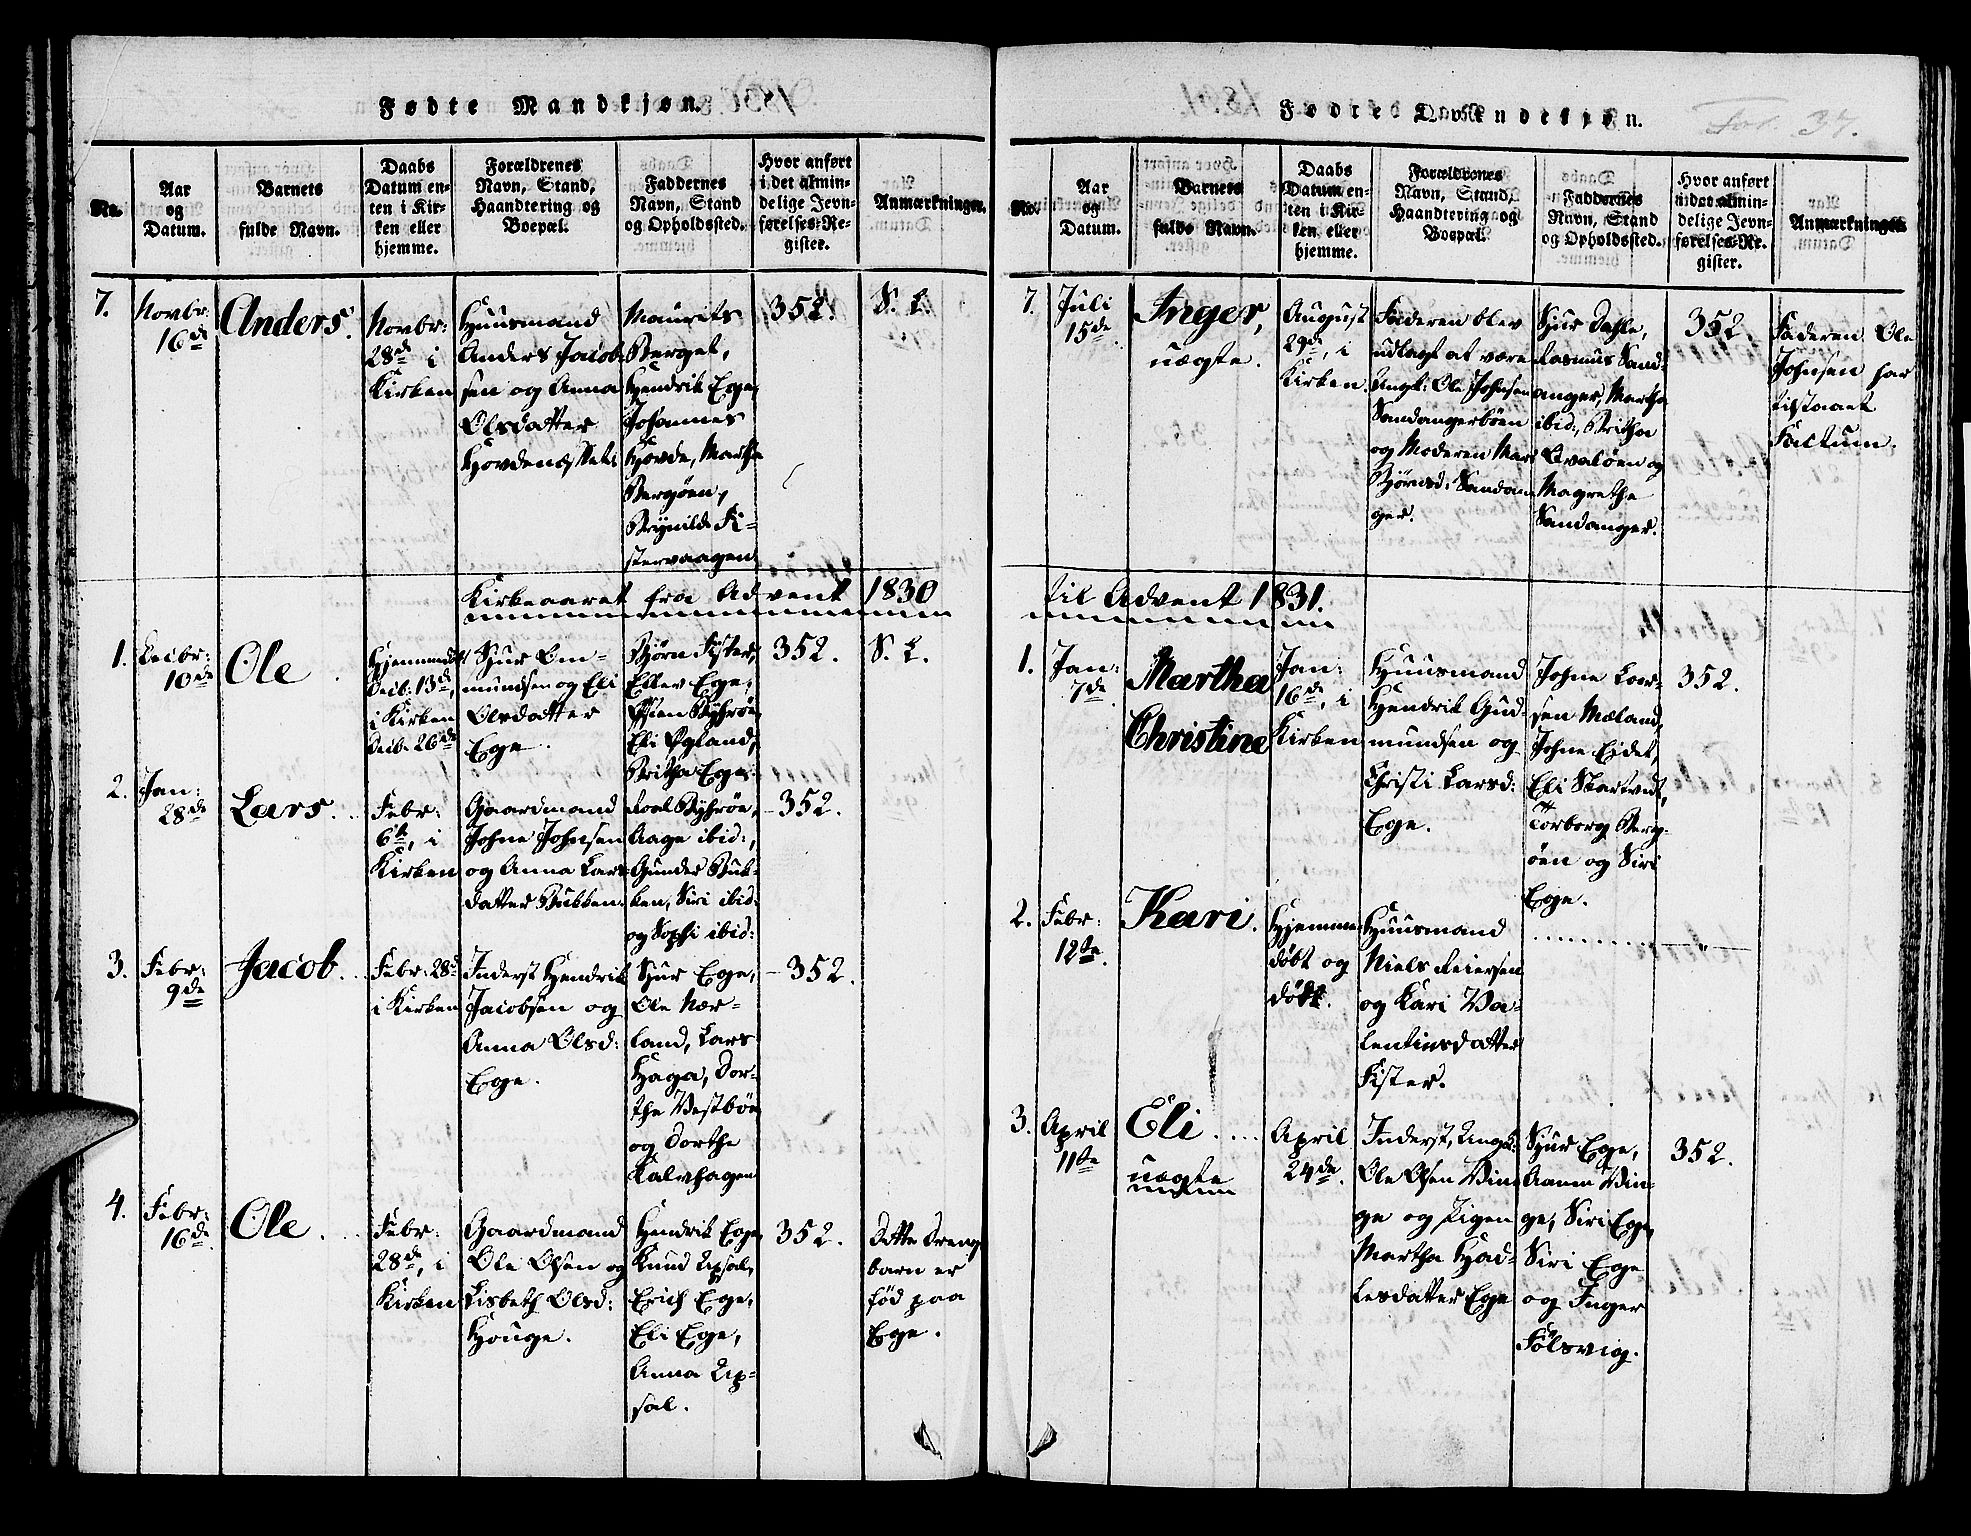 Fødte Mandkjøn.
No.
Aar
og
Datum.
Barnets
fulde Navn.
Daabs
Datum en-
ten i Kir-
ken eller
hjemme.
Forældrenes
Navn, Stand,
Haandtering og
Boepæl.
Faddernes
Navn, Stand
og Opholdssted.
Hvor anført
i det almin-
delige Jevn-
førelses-Re-
gister.
Anmærkninger.
7.
Novbr:
16de
Anders.
Novbr:
28de i
Kirken
Huusmand
Anders Jacob-
sen og Anna
Olsdatter
Maurits
Berget,
Hendrik Ege,
Johannes
Hovde, Martha
Bergøen,
Brynilde Fi-
stervaagen
352.
S. L.
Kirkeaaret fra Advent 1830
1.
Decbr:
10de
Ole
Hjemmedøbt
Decb: 13de,
i Kirken
Decb: 26de
Sjur Om-
mundsen og Eli
Olsdatter
Ege.
Bjørn Fister,
Ellev Ege,
Østen Byhrøe,
Eli Øgland,
Britha Ege.
352.
S. L.
2.
Jan:
28de
Lars.
Febr:
6te, i
Kirken
Gaardmand
Johne Johnsen
og Anna Lars-
datter Bukken.
Roal Byhrøe,
Aage ibid:,
Gunder Buk-
ken, Siri ibid:
og Sophi ibid:
352.
3.
Febr:
9de
Jacob.
Febr: 28de
i Kirken
Inderst Hendrik
Jacobsen og
Anna Olsd:
Ege.
Sjur Ege,
Ole Nær-
land, Lars
Haga, Dor-
the Vestbøe
og Dorthe
Kalvhagen
352.
4.
Febr:
16de
Ole
Febr:
28de, i
Kirken
Gaardmand
Ole Olsen og
Lisbeth Olsd:
Houge.
Hendrik Ege,
Knud Upsal,
Erich Ege,
Eli Ege,
Anna Up-
sal.
352.
Dette Dreng-
barn er
fød paa
Ege.
Fødte Qvindekjøn.
Fol. 37.
No.
Aar
og
Datum.
Barnets
fulde Navn.
Daabs
Datum en-
ten i Kir-
ken eller
hjemme.
Forældrenes
Navn, Stand,
Haandtering og
Boepæl.
Faddernes
Navn, Stand
og Opholdssted.
Hvor anført
i det almin-
delige Jevn-
førelses-Re-
gister.
Anmærkninger
7.
Juli
15de
Inger,
uægte.
August
29de, i
Kirken.
Faderen blev
udlagt at være
Ungk: Ole Johnsen
Sandangerbøen
og Moderen Mari
Bjørnsd: Sandan-
ger.
Sjur Dahle,
Rasmus Sand-
anger, Martha
ibid:, Britha
Qvaløen og
Magrethe
Sandanger.
352
Faderen Ole
Johnsen har
tilstaaet
Factum.
til Advent 1831.
1.
Jan:
7de
Martha
Christine
Jan:
16de, i
Kirken
Huusmand
Hendrik Gud-
mundsen og
Christi Larsd:
Ege.
Johne Laur-
sen Mæland,
Johne Eidet,
Eli Skartvedt,
Torborg Berg-
øen og Siri
Ege.
352.
2.
Febr:
12te
Kari.
Hjemme-
døbt og
død.
Huusmand
Niels Reiersen
og Kari Va-
lentinsdatter
Fister.
3.
April
11te
Eli
uægte
April
24de.
Inderst, Ungk:
Ole Olsen Vin-
ge og Pigen
Martha Had-
lesdatter Ege
Sjur Ege,
Aanen Vin-
ge, Siri Ege,
Siri Ege
og Inger
Følsvig.
352.